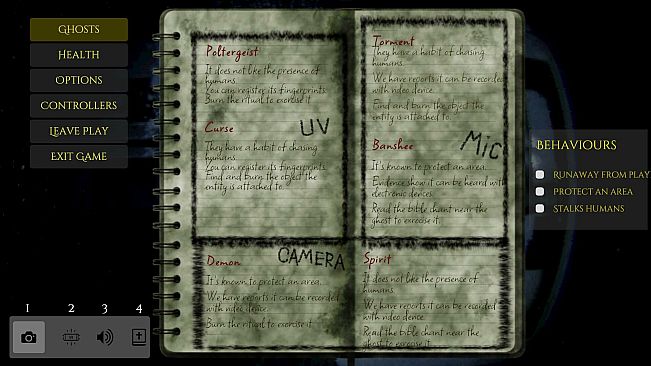 Ghosts
Health
Options
Controllers
Leave Play
Exit Game
1 2 3 4
Poltergeist
It does not like the presence of
humans.
You can register its fingerprints
Burn the ritual to exorcise it
Curse
UV
They have a habit of chasing
humans.
You can register its fingerprints
Find and burn the object the
entity is attached to.
Demon
CAMERA
It's known to protect an area.
We have reports it can be recorded
with video device.
Burn the ritual to exorcise it
Torment
They have a habit of chasing
humans.
We have reports it can be recorded
with video device.
Find and burn the object the
entity is attached to.
Banshee
Mic
It's known to protect an area.
Evidence show it can be heard with
electronic devices.
Read the bible chant near the
ghost to exorcise it.
Spirit
It does not like the presence of
humans.
We have reports it can be recorded
with video device.
Read the bible chant near the
ghost to exorcise it.
Behaviours
Runaway from play
Protect an area
Stalks humans